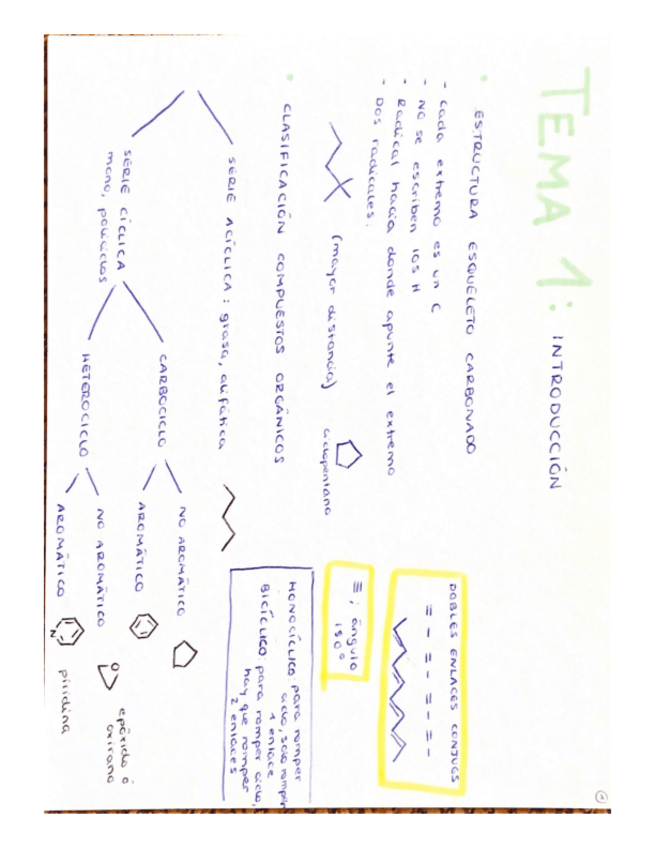 TEMA 1: INTRODUCCIÓN
• ESTRUCTURA ESQUELETO CARBONADO
- Cada extremo es un C
- No se escriben los H
- Radical hacia donde apunte el extremo
- Dos radicales:
(mayor distancia)
ciclopentano
DOBLES ENLACES CONJUGS
= - = - = - = -
≡; ángulo
180°
• CLASIFICACIÓN COMPUESTOS ORGÁNICOS
SÉRIE ACÍCLICA: grasa, alifática
SÉRIE CÍCLICA
mono, policiclos
CARBOCICLO
NO AROMÁTICO
AROMÁTICO
HETEROCICLO
NO AROMÁTICO
O
epóxido ó
oxirano
AROMÁTICO
N
piridina
MONOCÍCLICO: para romper
ciclo, solo rompen
1 enlace
BICÍCLICO: para romper ciclo,
hay que romper
2 enlaces